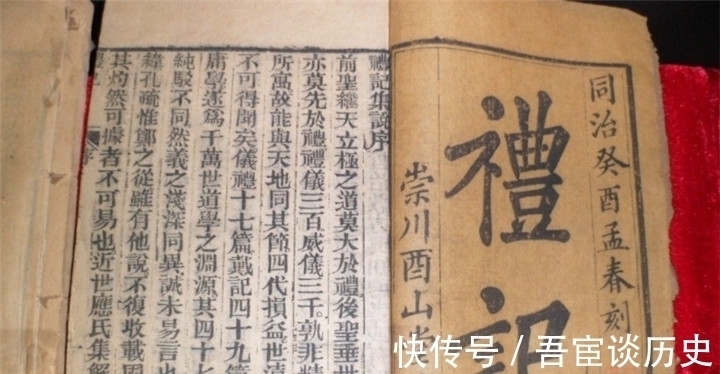 同治癸酉孟春刻
禮記
崇川酉山
禮記集說序
前聖繼天立極之道莫大於禮後聖垂世
亦莫先於禮禮儀三百威儀三千孰非精
所寓故能與天地同其節四代損益世遠
不可得聞矣儀禮十七篇戴記四十九篇
庸學遂爲千萬世道學之淵源其四十七
純駁不同然義之淺深同異誠未易言也
緯孔疏惟鄭之從雖有他說不復收載固
其灼然可據者不可易也近世應氏集解
序
快传号/吾宦谈历史